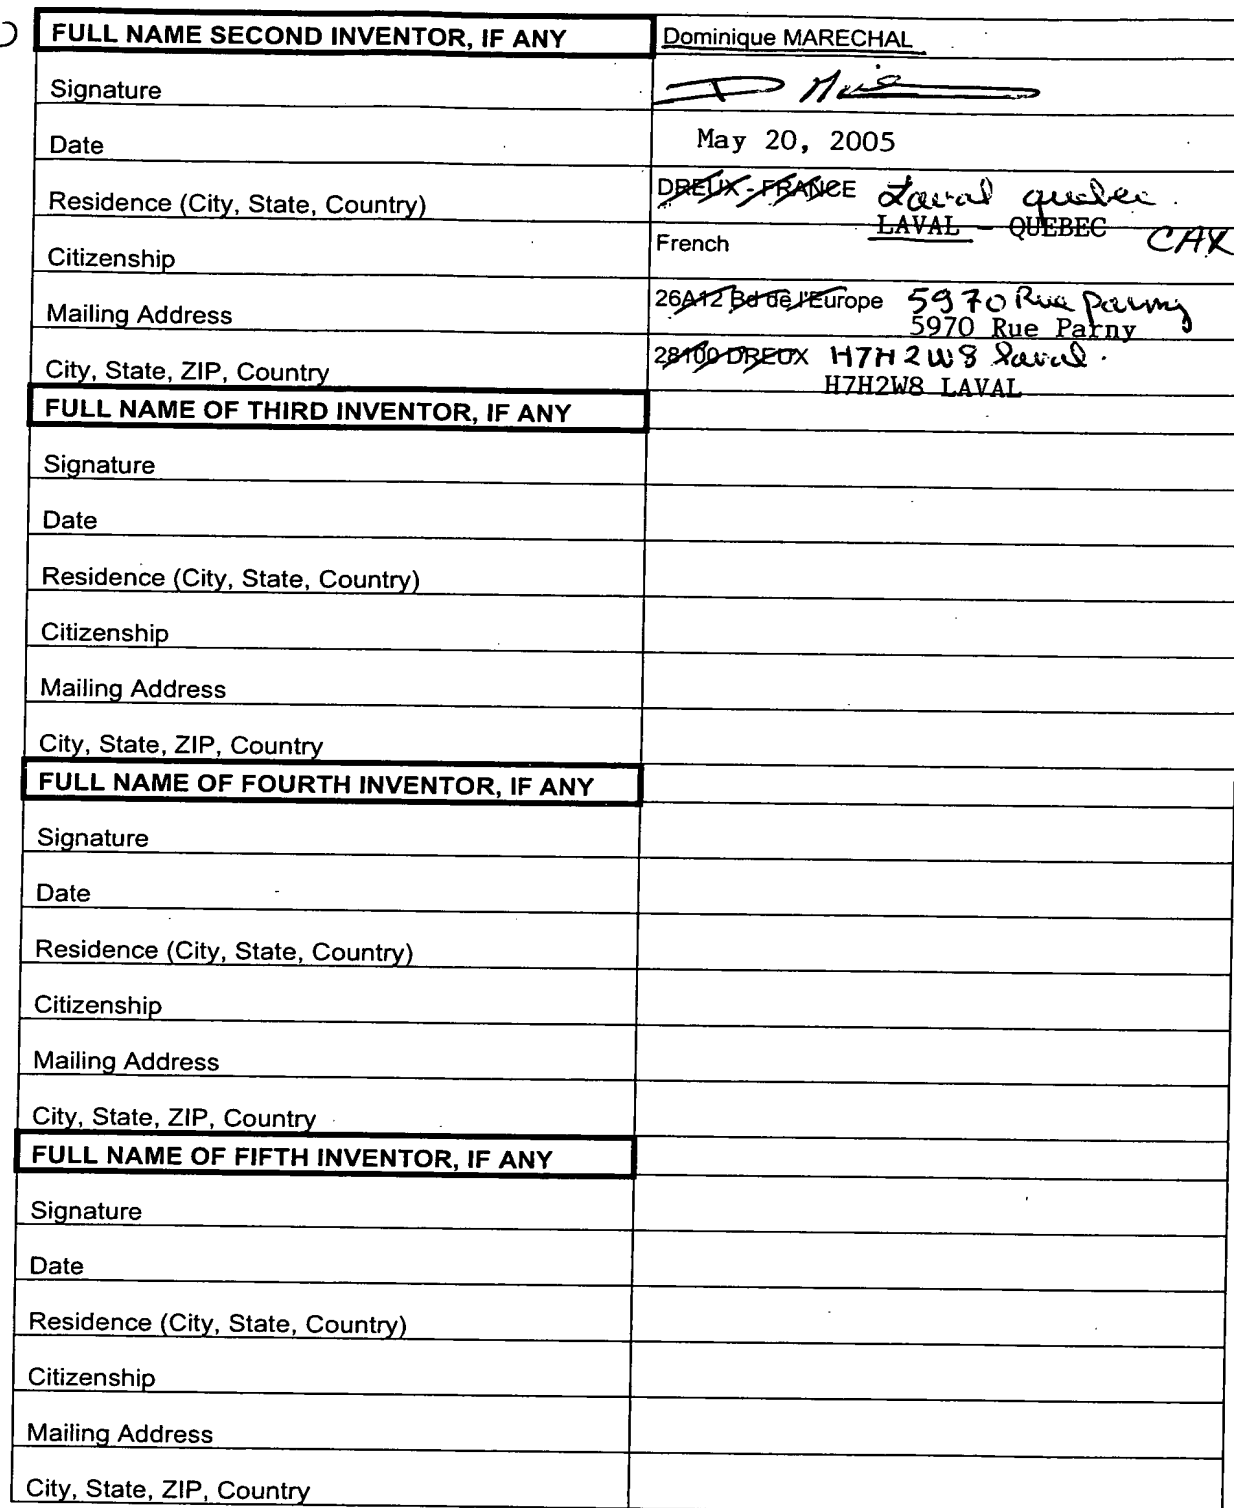 FULL NAME SECOND INVENTOR, IF ANY Dominique MARECHAL
Signature
Date May 20, 2005
Residence (City, State, Country) DREUX - FRANCE Laval quebec
LAVAL - QUEBEC CAX
Citizenship French
Mailing Address 26A12 Bd de l'Europe 5970 Rue Parny
5970 Rue Parny
City, State, ZIP, Country 28100 DREUX H7H 2W8 Laval.
H7H2W8 LAVAL
FULL NAME OF THIRD INVENTOR, IF ANY
Signature
Date
Residence (City, State, Country)
Citizenship
Mailing Address
City, State, ZIP, Country
FULL NAME OF FOURTH INVENTOR, IF ANY
Signature
Date
Residence (City, State, Country)
Citizenship
Mailing Address
City, State, ZIP, Country
FULL NAME OF FIFTH INVENTOR, IF ANY
Signature
Date
Residence (City, State, Country)
Citizenship
Mailing Address
City, State, ZIP, Country